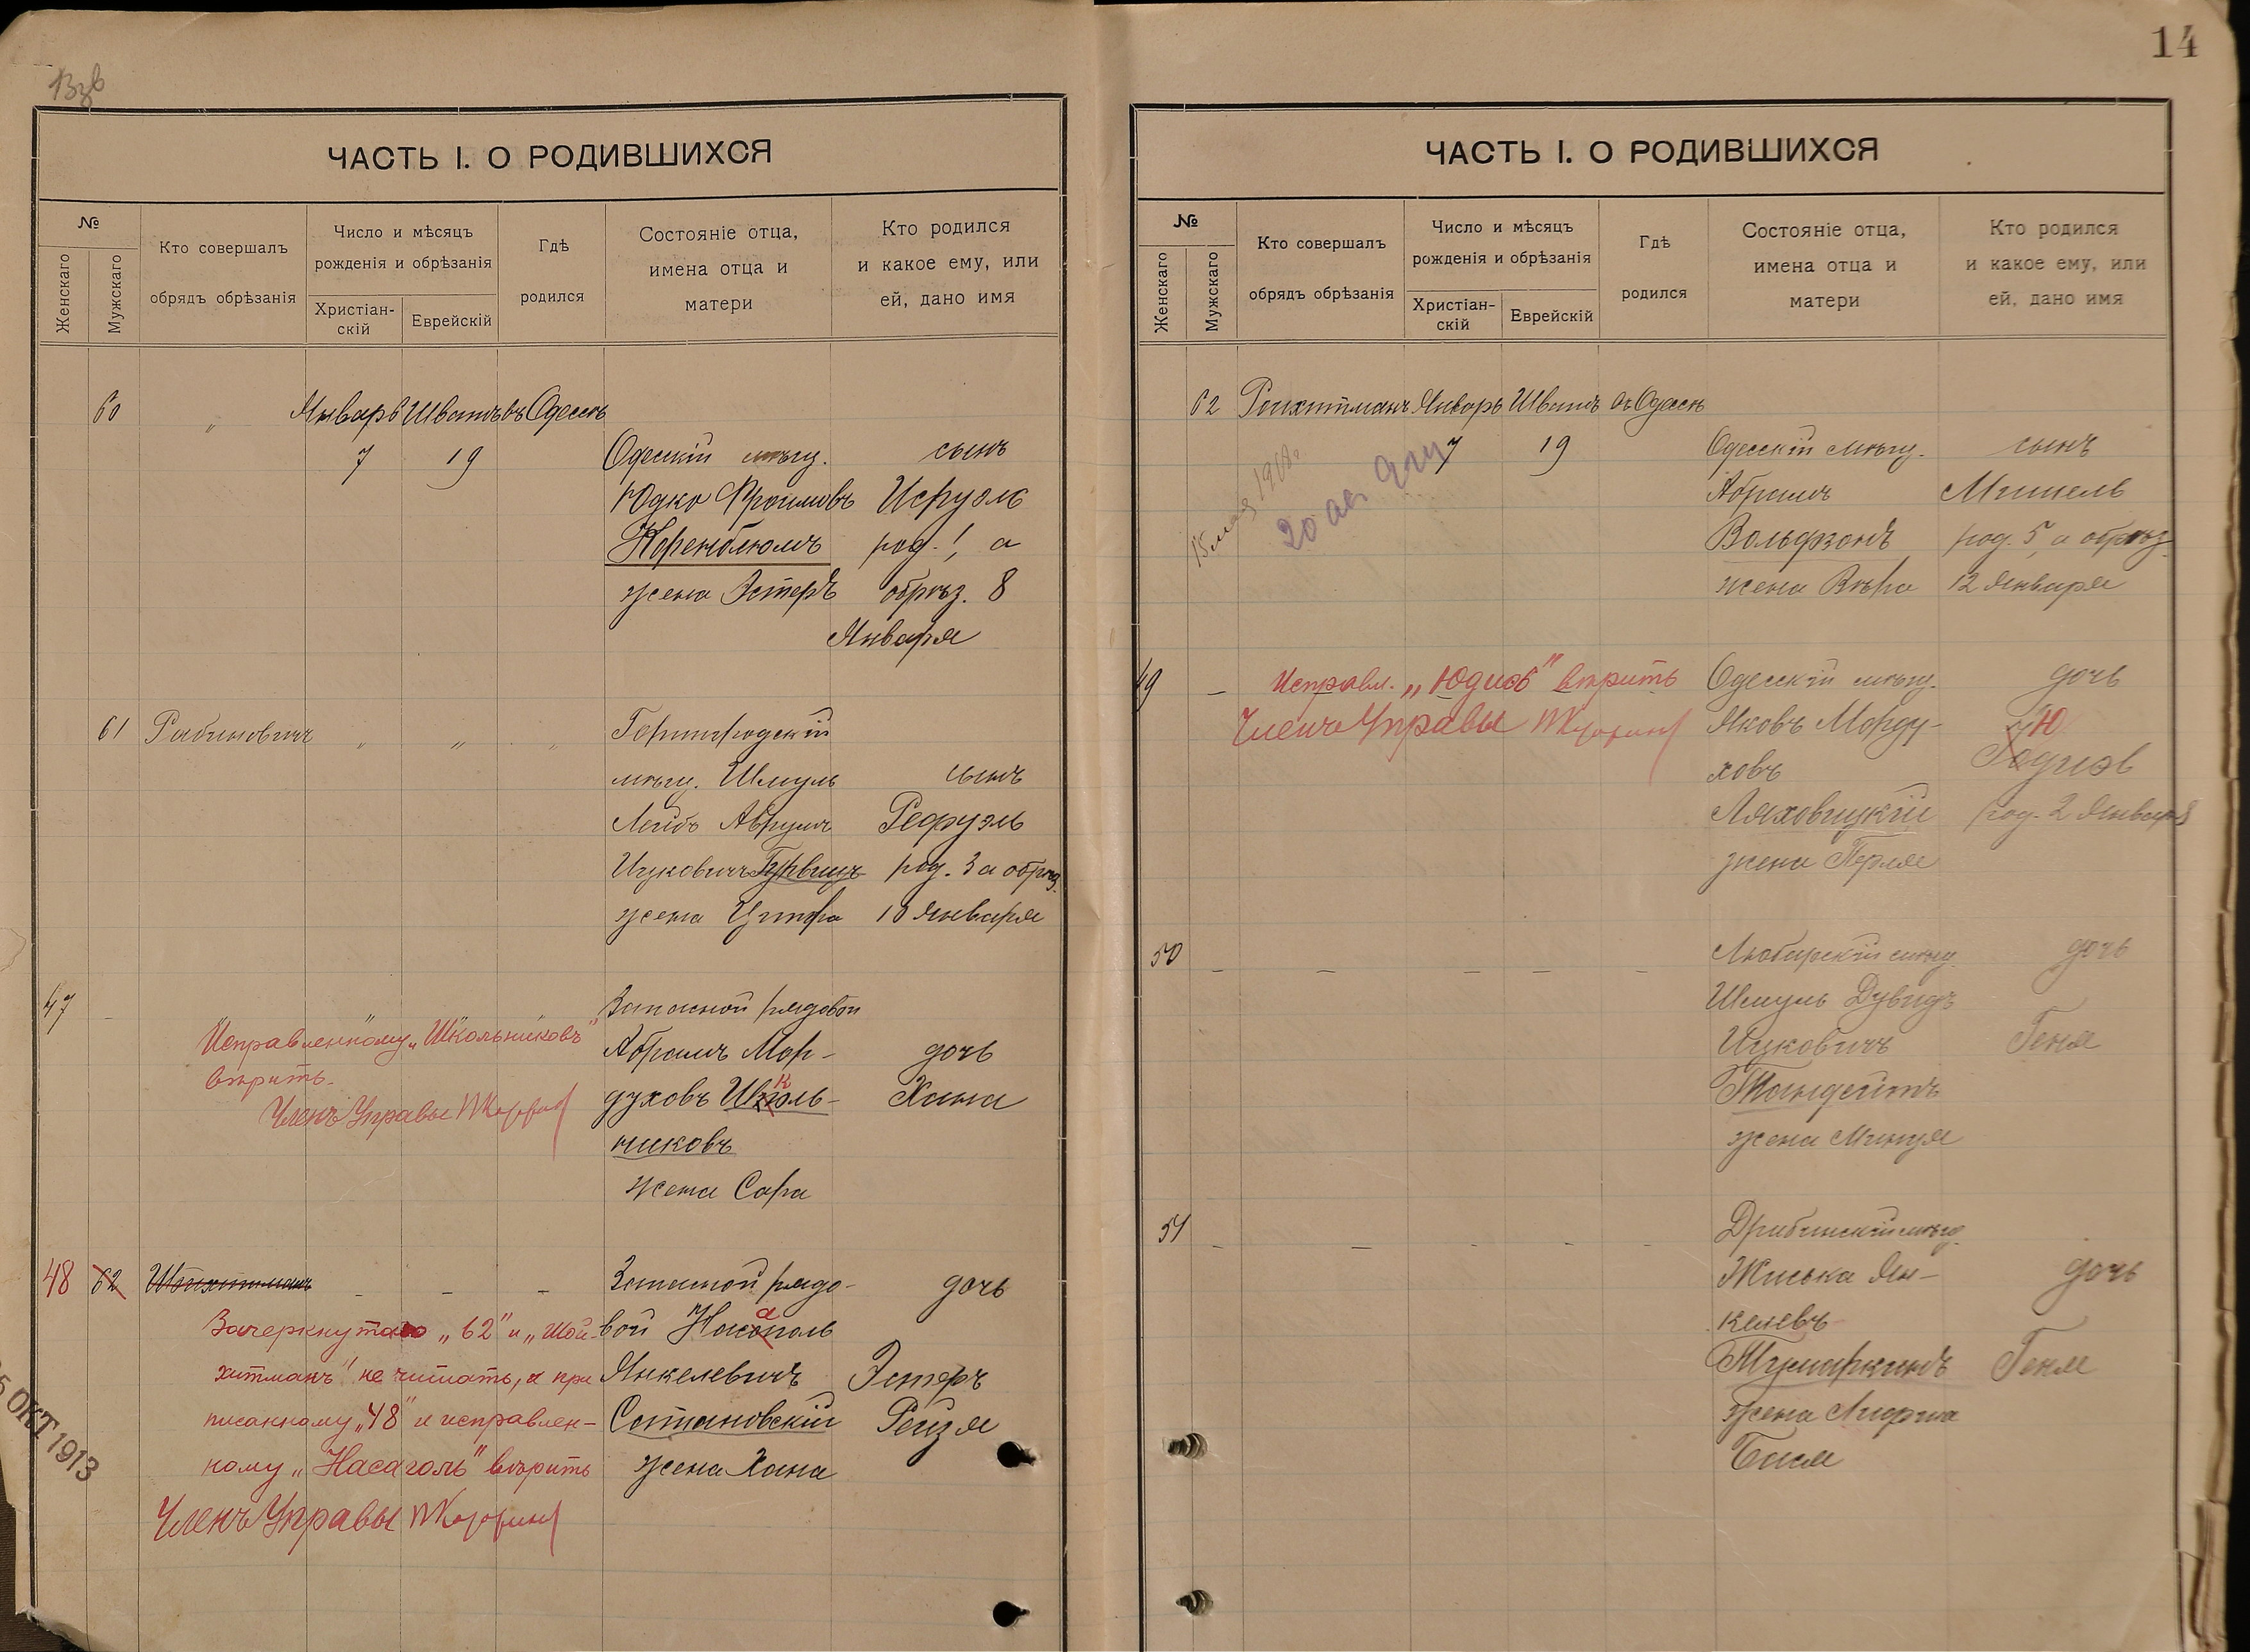 13зв
ЧАСТЬ I. О РОДИВШИХСЯ
№
Женскаго
Мужскаго
Кто совершалъ
обрядъ обрѣзанія
Число и мѣсяцъ
рожденія и обрѣзанія
Христіан-
скій
Еврейскій
Гдѣ
родился
Состояніе отца,
имена отца и
матери
Кто родился
и какое ему, или
ей, дано имя
60 „ Январь Шватъ въ Одессѣ
7 19 Одесскій мѣщ. сынъ
Юдко Фроимовъ Исруэль
Коренблюмъ род. 1, а
жена Эстеръ обрѣз. 8
Января
61 Рабиновичъ „ „ „
мѣщ. Шмуль сынъ
Лейбъ Аврумъ Рефуэль
Ицковичъ Гурвицъ род. 3 а обрѣз.
жена Ципра 10 Января
47 - Запасной рядовой
Исправленному „Школьниковъ"
вѣрить.
Членъ Управы
Абрамъ Мор- дочь
духовъ Школь- Хана
никовъ
жена Сара
48 62 - - - Запасной рядо- дочь
Зачеркнутаго „62" и „Шой-
хитманъ" не читать, а при
писанному „48" и исправлен-
ному „Насаголь" вѣрить
Членъ Управы
вой
Янкелевичъ Эстеръ
Сотановскій Рейзя
жена Хана
ОКТ 1913
14
ЧАСТЬ I. О РОДИВШИХСЯ
№
Женскаго
Мужскаго
Кто совершалъ
обрядъ обрѣзанія
Число и мѣсяцъ
рожденія и обрѣзанія
Христіан-
скій
Еврейскій
Гдѣ
родился
Состояніе отца,
имена отца и
матери
Кто родился
и какое ему, или
ей, дано имя
62 Январь Шватъ въ Одессѣ
7 19 Одесскій мѣщ. сынъ
Абрамъ Мишель
Вольфзонъ род. 5, а обрѣз.
жена Вѣра 12 Января
49 - Исправл. „Юдиѳь" вѣрить Одесскій мѣщ. дочь
Членъ Управы Яковъ Морду- Ю
ховъ
Ляховицкій род. 2 Января
жена Перля
50 - - - - - Любарскій мѣщ. дочь
Шмуль Дувидъ
Ицковичъ Геня
жена Минця
51 - - - - - Дрибинскій мѣщ.
Янкелевъ
дочь
Геня
жена
Бася